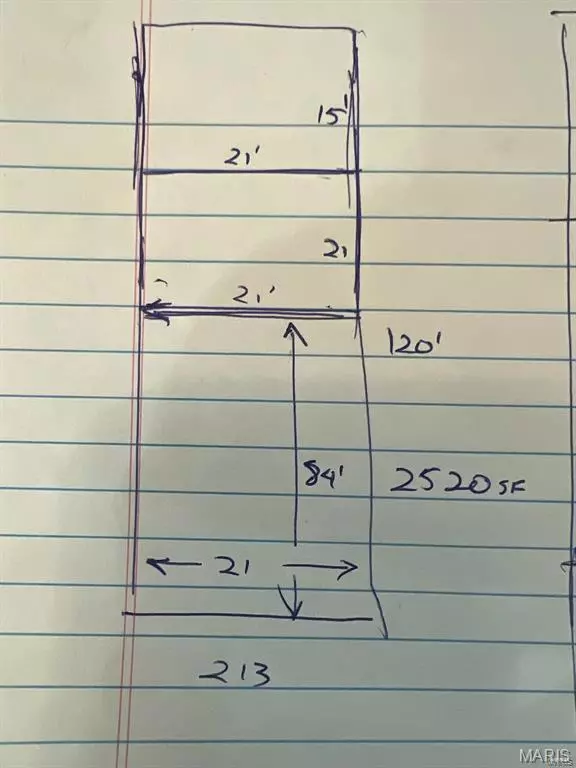 15'
21'
21
21'
120'
84'
2520 SF
21
213
MARIS